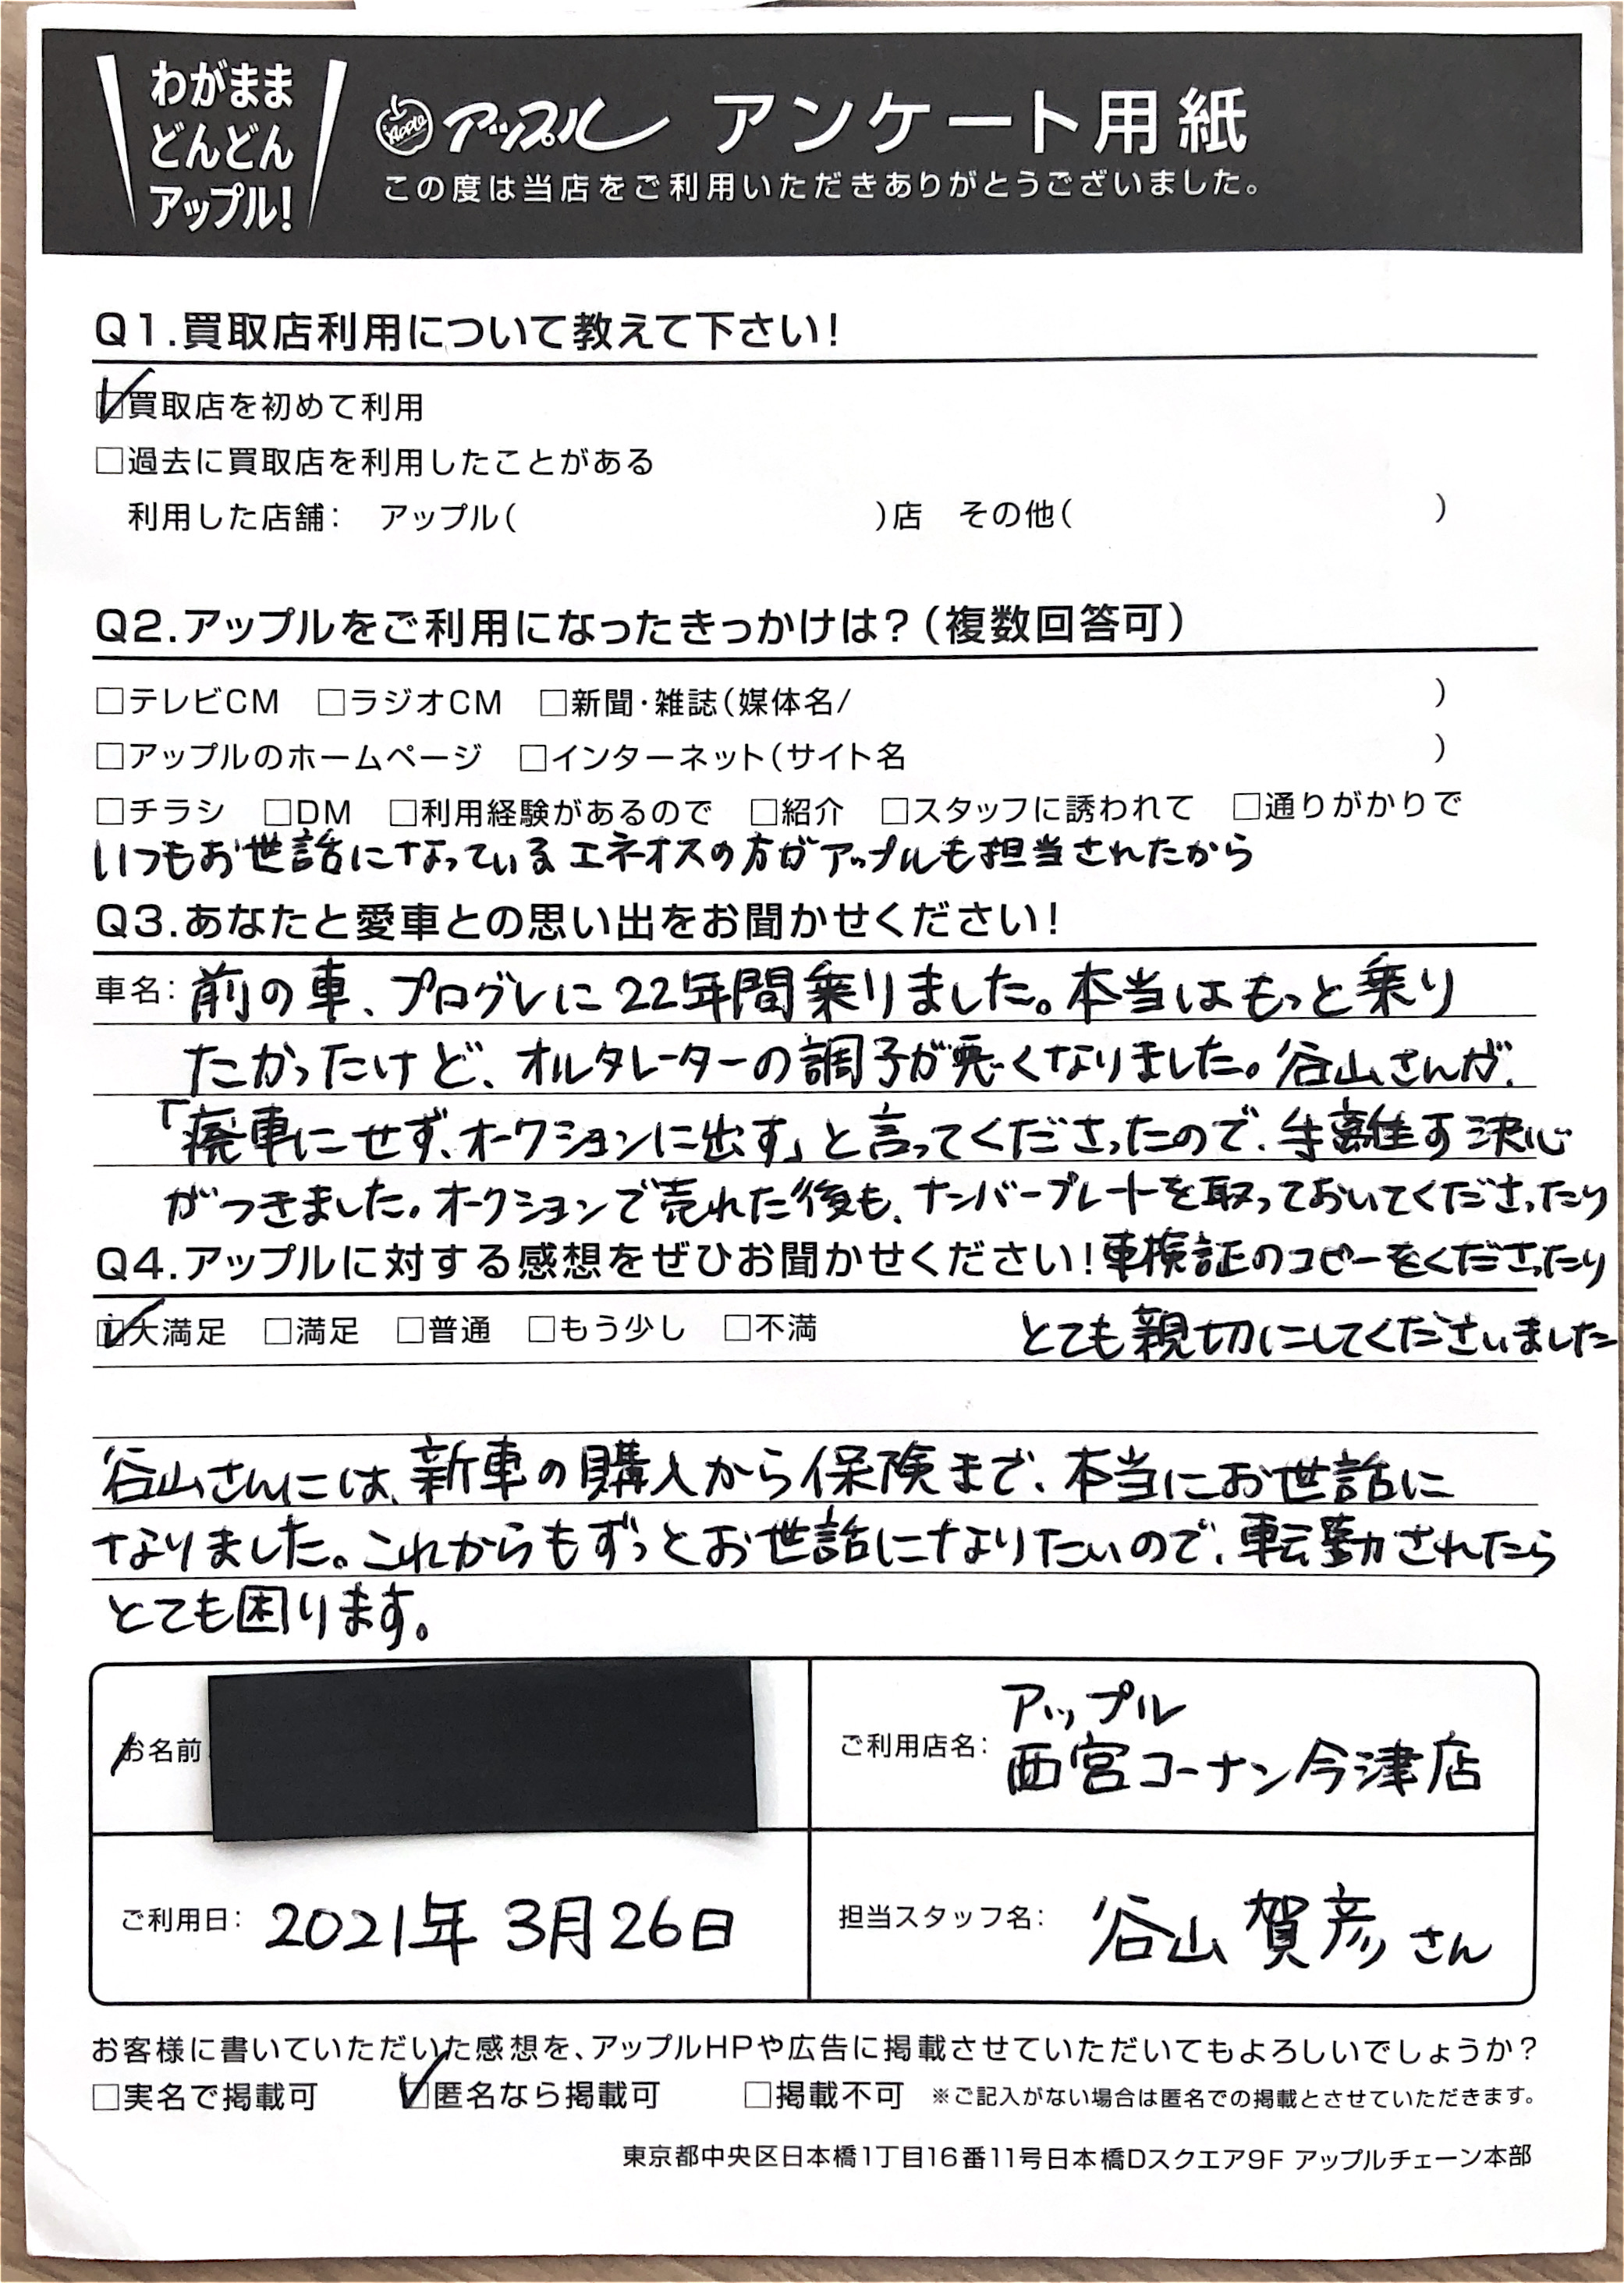 わがまま
どんどん
アップル!
Apple アップル アンケート用紙
この度は当店をご利用いただきありがとうございました。
Q1.買取店利用について教えて下さい!
☑買取店を初めて利用
□過去に買取店を利用したことがある
利用した店舗: アップル( )店 その他( )
Q2.アップルをご利用になったきっかけは?(複数回答可)
□テレビCM □ラジオCM □新聞・雑誌(媒体名/ )
□アップルのホームページ □インターネット(サイト名 )
□チラシ □DM □利用経験があるので □紹介 □スタッフに誘われて □通りがかりで
いつもお世話になっているエネオスの方がアップルも担当されたから
Q3.あなたと愛車との思い出をお聞かせください!
車名: 前の車、プログレに22年間乗りました。本当はもっと乗り
たかったけど、オルタレーターの調子が悪くなりました。谷山さんが、
「廃車にせず、オークションに出す」と言ってくださったので、手離す決心
がつきました。オークションで売れた後も、ナンバープレートを取っておいてくださったり
Q4.アップルに対する感想をぜひお聞かせください!車検証のコピーをくださったり
☑大満足 □満足 □普通 □もう少し □不満 とても親切にしてくださいました
谷山さんには、新車の購入から保険まで、本当にお世話に
なりました。これからもずっとお世話になりたいので、転勤されたら
とても困ります。
お名前
ご利用店名: アップル
西宮コーナン今津店
ご利用日: 2021年 3月26日
担当スタッフ名: 谷山 賀彦 さん
お客様に書いていただいた感想を、アップルHPや広告に掲載させていただいてもよろしいでしょうか?
□実名で掲載可 ☑匿名なら掲載可 □掲載不可 ※ご記入がない場合は匿名での掲載とさせていただきます。
東京都中央区日本橋1丁目16番11号日本橋Dスクエア9F アップルチェーン本部